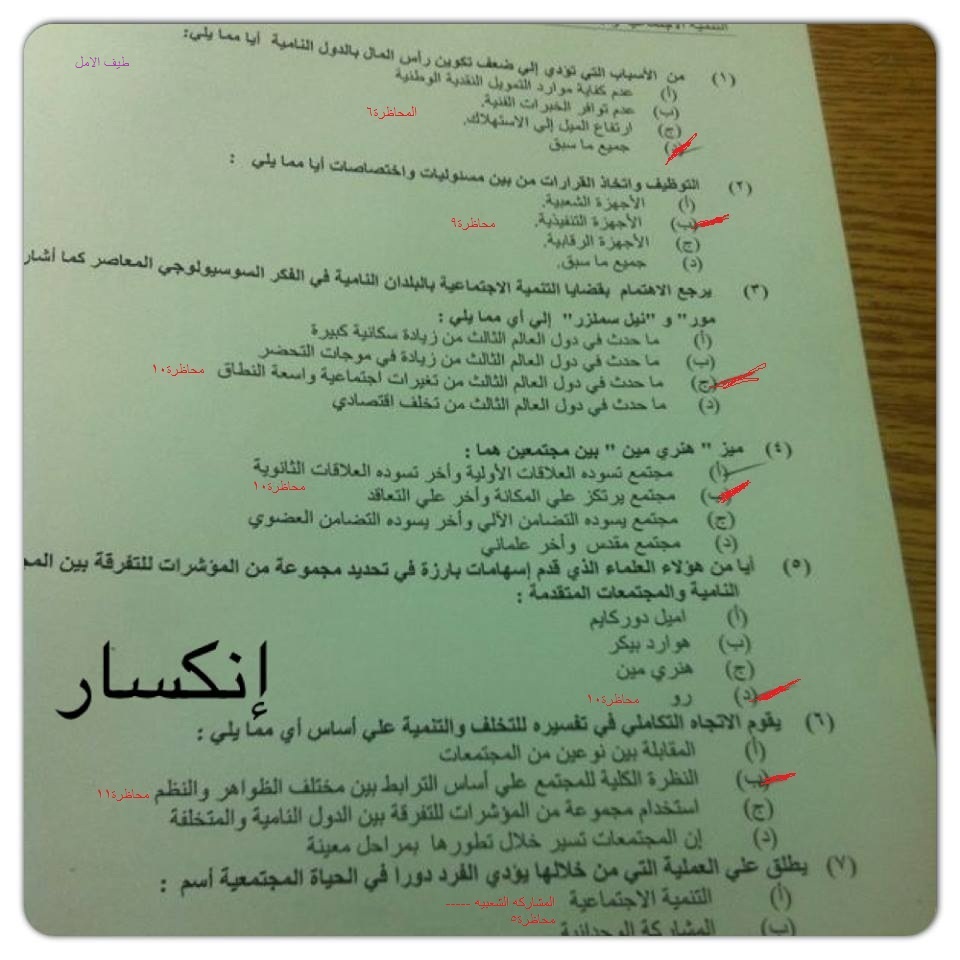 التنمية الاجتماعية
طيف الامل
(١) من الأسباب التي تؤدي إلي ضعف تكوين رأس المال بالدول النامية أيا مما يلي:
(أ) عدم كفاية موارد التمويل النقدية الوطنية
(ب) عدم توافر الخبرات الفنية.
المحاظرة٦
(ج) ارتفاع الميل إلي الاستهلاك.
(د) جميع ما سبق
(٢) التوظيف واتخاذ القرارات من بين مسئوليات واختصاصات أيا مما يلي :
(أ) الأجهزة الشعبية.
(ب) الأجهزة التنفيذية. محاظرة٩
(ج) الأجهزة الرقابية.
(د) جميع ما سبق.
(٣) يرجع الاهتمام بقضايا التنمية الاجتماعية بالبلدان النامية في الفكر السوسيولوجي المعاصر كما أشار
مور" و "نيل سملزر" إلي أي مما يلي :
(أ) ما حدث في دول العالم الثالث من زيادة سكانية كبيرة
(ب) ما حدث في دول العالم الثالث من زيادة في موجات التحضر
(ج) ما حدث في دول العالم الثالث من تغيرات اجتماعية واسعة النطاق محاظرة١٠
(د) ما حدث في دول العالم الثالث من تخلف اقتصادي
(٤) ميز " هنري مين " بين مجتمعين هما :
(أ) مجتمع تسوده العلاقات الأولية وأخر تسوده العلاقات الثانوية
(ب) مجتمع يرتكز علي المكانة وأخر علي التعاقد محاظرة١٠
(ج) مجتمع يسوده التضامن الآلي وأخر يسوده التضامن العضوي
(د) مجتمع مقدس وأخر علماني
(٥) أيا من هؤلاء العلماء الذي قدم إسهامات بارزة في تحديد مجموعة من المؤشرات للتفرقة بين
النامية والمجتمعات المتقدمة :
(أ) اميل دوركايم
(ب) هوارد بيكر
(ج) هنري مين
(د) رو محاظرة١٠
إنكسار
(٦) يقوم الاتجاه التكاملي في تفسيره للتخلف والتنمية علي أساس أي مما يلي :
(أ) المقابلة بين نوعين من المجتمعات
(ب) النظرة الكلية للمجتمع علي أساس الترابط بين مختلف الظواهر والنظم محاظرة١١
(ج) استخدام مجموعة من المؤشرات للتفرقة بين الدول النامية والمتخلفة
(د) إن المجتمعات تسير خلال تطورها بمراحل معينة
(٧) يطلق علي العملية التي من خلالها يؤدي الفرد دورا في الحياة المجتمعية أسم :
(أ) التنمية الاجتماعية المشاركه الشعبيه -----
محاظرة٥
(ب) المشاركة الوجدانية